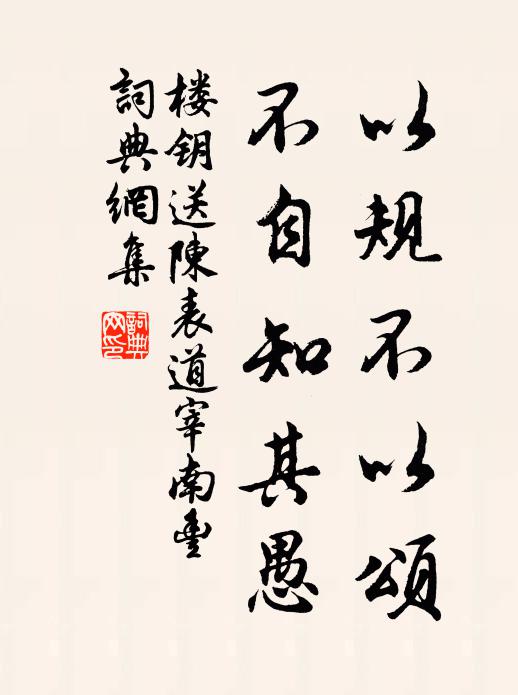 以规不以頌
不自知其愚
楼钥送陳表道宰南豐
詞典網集
詞典网印